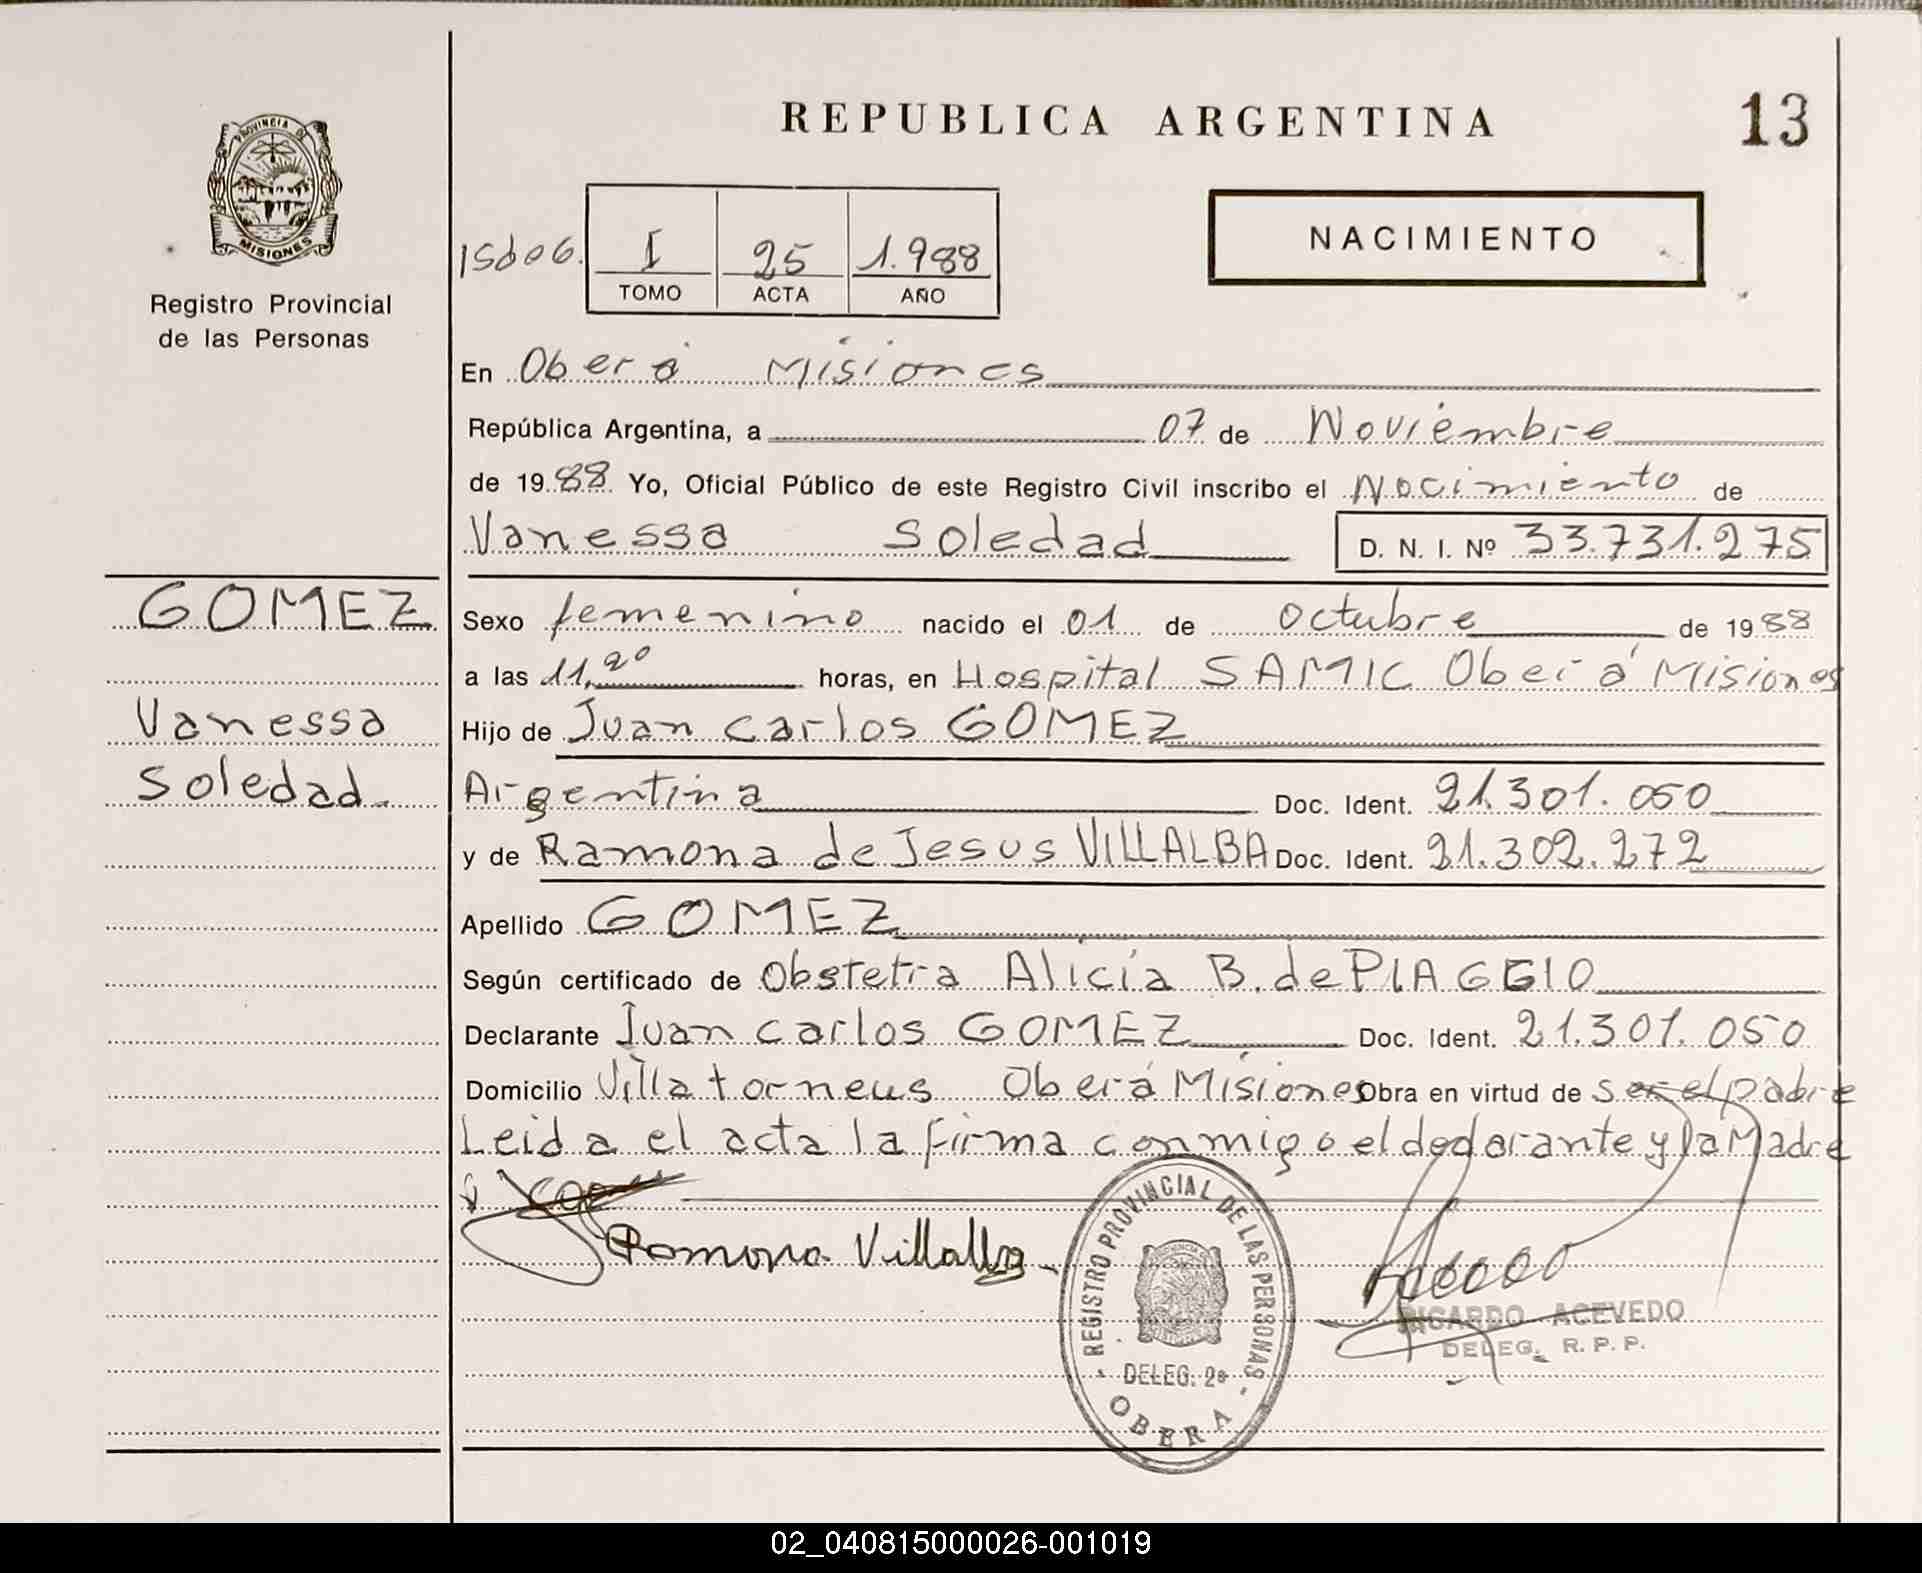 REPUBLICA ARGENTINA
13
PROVINCIA DE
MISIONES
Registro Provincial
de las Personas
I 25 1.988
TOMO ACTA AÑO
NACIMIENTO
En Oberá Misiones
República Argentina, a 07 de Noviembre
de 1988 Yo, Oficial Público de este Registro Civil inscribo el Nacimiento de
Vanessa Soledad D. N. I. Nº 33.731.275
GOMEZ
Vanessa
Soledad
Sexo femenino nacido el 01 de octubre de 1988
a las 11,20 horas, en Hospital SAMIC Oberá Misiones
Hijo de Juan Carlos GOMEZ
Argentina Doc. Ident. 21.301.050
y de Ramona de Jesus VILLALBA Doc. Ident. 21.302.272
Apellido GOMEZ
Según certificado de Obstetra Alicia B. de PIAGGIO
Declarante Juan Carlos GOMEZ Doc. Ident. 21.301.050
Domicilio Villa torneus Oberá Misiones Obra en virtud de ser el padre
Leida el acta la firma conmigo el declarante y la Madre
Ramona Villalba
REGISTRO PROVINCIAL DE LAS PERSONAS
DELEG. 2ª
OBERA
RICARDO ACEVEDO
DELEG. R. P. P.
02_040815000026-001019